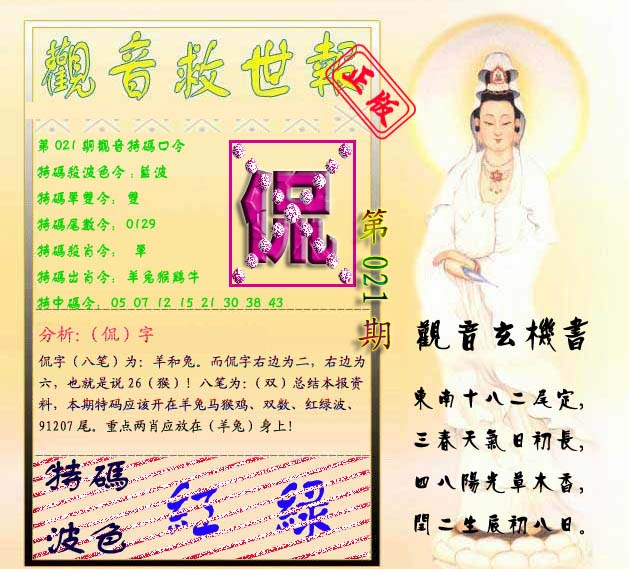 觀音救世報
正版
第021期觀音特碼口令
特碼殺波色令:藍波
特碼單雙令: 雙
特碼尾數令: 0129
特碼殺肖令: 單
特碼出肖令: 羊兔猴鷄牛
特中碼令: 05 07 12 15 21 30 38 43
侃
第021期
分析:（侃）字
侃字（八笔）为：羊和兔。而侃字右边为二，右边为
六，也就是说26（猴）！八笔为：（双）总结本报资
料，本期特码应该开在羊兔马猴鸡、双数、红绿波、
91207尾。重点两肖应放在（羊兔）身上！
特碼
波色
紅 綠
觀音玄機書
東南十八二尾定，
三春天氣日初長，
四八陽光草木香，
閏二生辰初八日。